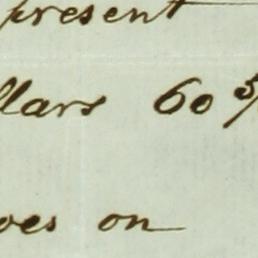 present
llars 60 5/
oes on